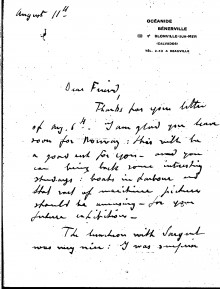 August 11th
OCÉANIDE
BÉNERVILLE
BLONVILLE-SUR-MER
CALVADOS
Dear Friend,
Thanks for your letter
of Aug. 6th. I am glad you leave
soon for Norway: this will be
a good rest for you – and you
can bring back some interesting
studies: boats in harbour and
that sort of maritime pictures
should be amusing – for your
future exhibitions –
The luncheon with Sargent
was very nice: I was